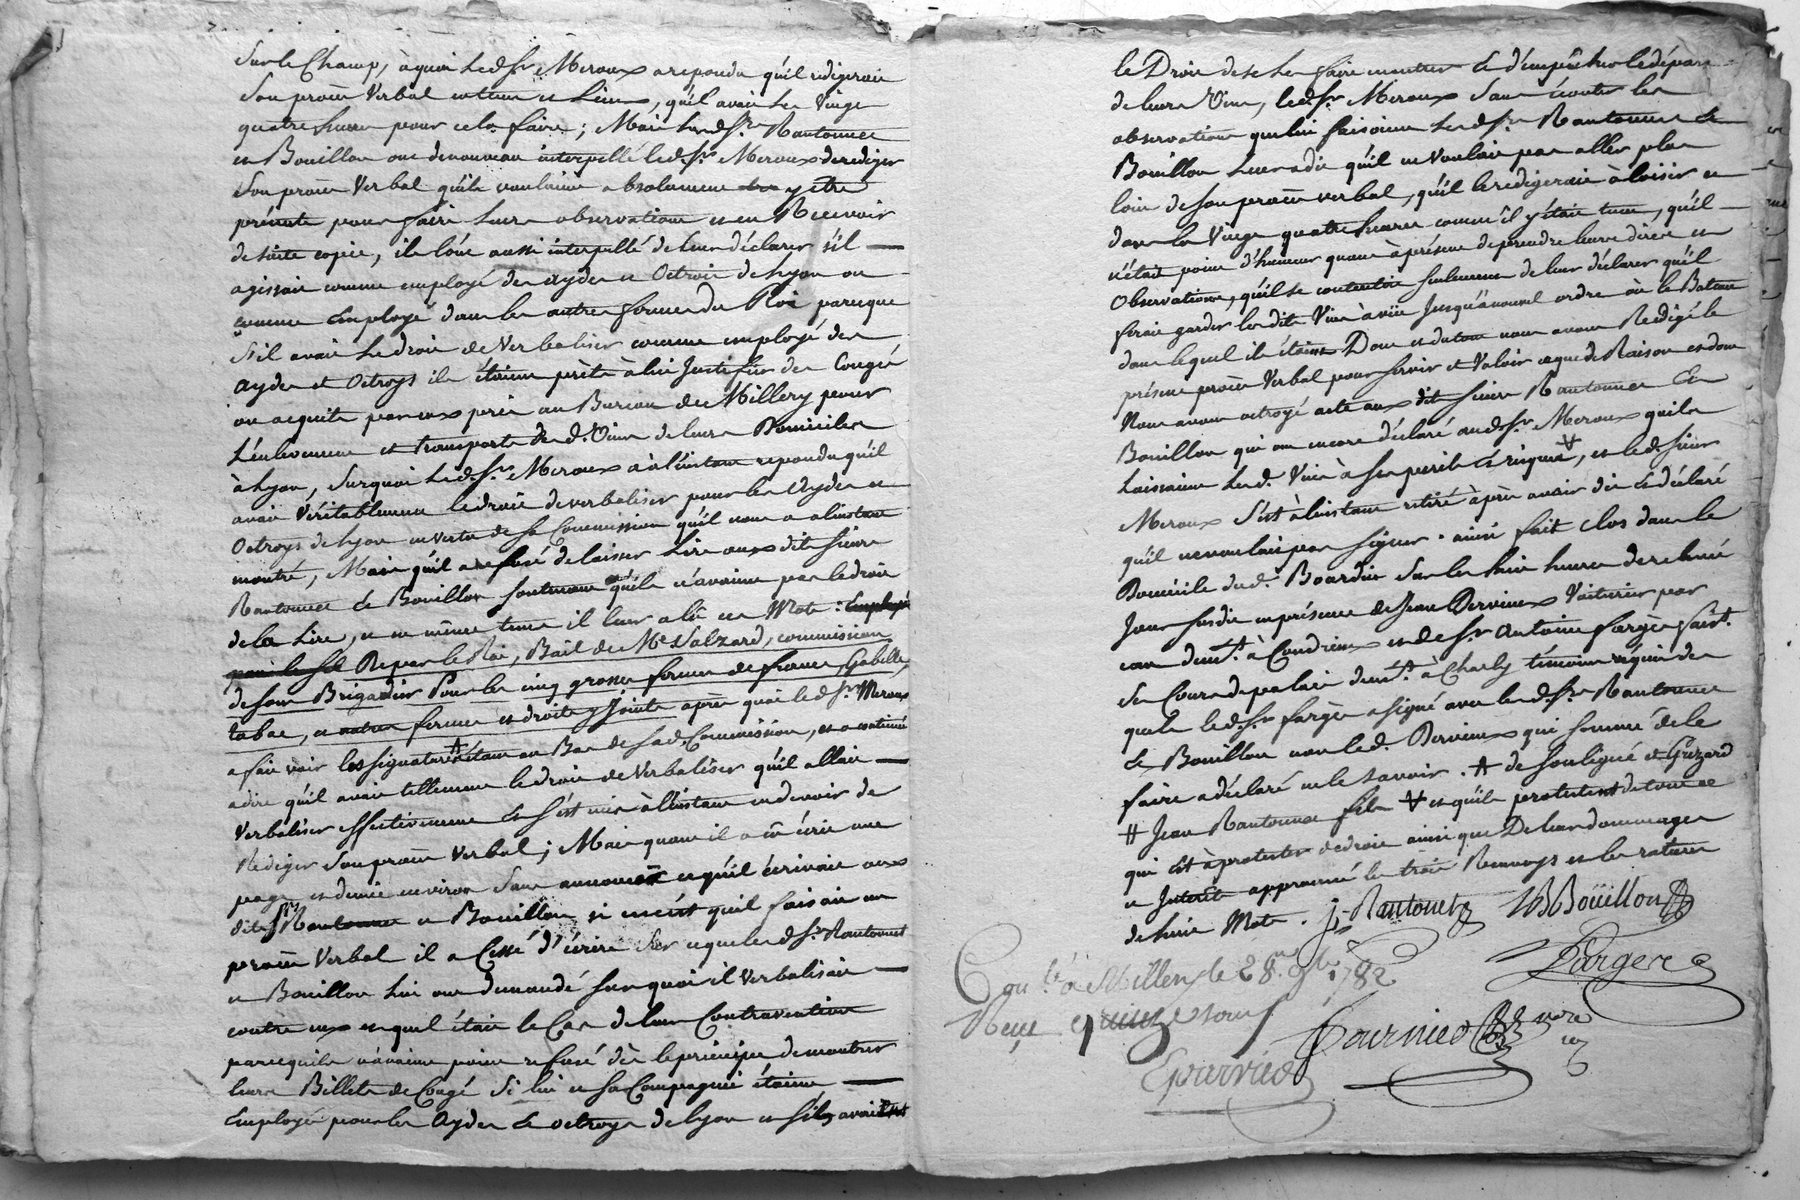 Sur le Champ, à quoi led. Sr. Meroux a repondu qu'il redigeroit
Son procès Verbal en tems et Lieux, qu'il avoit les Vingt
quatre heures pour cela faire ; Mais lesd. Srs. Rantonnet
et Bouillon ont de nouveau interpellé led. Sr. Meroux de rediger
Son procès Verbal qu'ils vouloient absolument y etre
présents pour faire leurs observations et en Recevoir
de suite copie, ils l'ont aussi interpellé de leur déclarer s'il
agissoit comme employé des aydes et Octrois de Lyon ou
comme Employé dans les autres fermes du Roi parceque
S'il avoit le droit de Verbaliser comme employé des
aydes et Octroys ils étoient prêts à lui Justifier des Congés
ou acquits par eux pris au Bureau de Millery pour
L'enlevement et transports de d. Vins de leurs Domiciles
à Lyon, Surquoi led. Sr. Meroux a à l'instant repondu qu'il
avoit Véritablement le droit de verbaliser pour les Aydes et
Octroys de Lyon en vertu de Sa Commission qu'il nous a à l'instant
montré, Mais qu'il a refusé de laisser Lire aux dits Sieurs
Rantonnet & Bouillon soutenant qu'ils n'avoient pas le droit
de la Lire, et en même tems il leur a lû ces Mots : Employé
pour le Sel De par le Roi, Bail de Me Salzard, commission
de Sous Brigadier Pour les cinq grosses fermes de france, Gabelle,
tabac, et autres fermes et droits y Joints après quoi le d. Sr. Meroux
a fait voir les Signatures étant au Bas de Sad. Commission, et a continué
à dire qu'il avoit tellement le droit de Verbaliser qu'il alloit
Verbaliser effectivement & s'est mis à l'instant en devoir de
Rediger Son procès Verbal ; Mais quant il a eû écrit une
page et demie environ Sans annoncer ce qu'il écrivoit aux
dits Srs Rantonnet et Bouillon, ni même qu'il faisoit un
procès Verbal il a Cessé d'écrire Sur ce que les d. Srs. Rantonnet
et Bouillon Lui ont demandé Sur quoi il Verbalisoit
contre eux et quel étoit le Cas de leur Contravention
parcequ'ils n'avoient point refusé dès le principe de montrer
leurs Billets de Congé Si lui et Sa Compagnie étoient
Employés pour les Aydes & octroys de Lyon et s'ils avoient
le Droit de se les faire montrer & d'empêcher le départ
de leurs Vins, led. Sr. Meroux Sans écouter les
observations que lui faisoient lesd. Srs. Rantonnet &
Bouillon Leur a dit qu'il ne Vouloit pas aller plus
loin de Son procès verbal, qu'il le redigeroit à loisir et
dans les Vingt quatre heures comme il y étoit tenu, qu'il
n'étoit point d'humeur quant à présent de prendre leurs dires et
Observations, qu'il se contentoit Seulement de leur déclarer qu'il
feroit garder lesdits Vins à vüe Jusqu'à nouvel ordre ou le Bateau
dans lequel ils étoient Dont et du tout nous avons Redigé le
présent procès Verbal pour Servir et Valoir ce que de Raison et dont
Nous avons octroyé acte aux dits Sieurs Rantonnet &
Bouillon qui ont encore déclaré aud. Sr. Meroux qu'ils
Laissoient lesd. Vins à Ses perils & risques, et led. Sieur
Meroux S'est à l'instant retiré après avoir dit & déclaré
qu'il ne vouloit pas Signer. ainsi fait clos dans le
Domicile dud. Bourdin Sur les huit heures de relevée
Jour susdit en présence de Jean Dervieux Voiturier par
eau demt. à Condrieu et de Sr. Antoine fargère
de Cours de palais demt. à Charly témoins requis des
quels led. Sr. fargère a Signé avec lesd. Srs. Rantonnet
& Bouillon non led. Dervieux qui Sommé de le
faire a déclaré ne le Savoir. de Souligné et Guzard
Jean Rantonnet fils et qu'ils protestent de tout ce
qui est à protester de droit ainsi que De leurs dommages
et Interets approuvé les trois Renvoys et les ratures
de huit Mots. J. Rantonet JB Boüillon
fargere
Coulé à Millery le 28. 9bre 1782
Reçu quinze sous
Fournied nore
Fournied